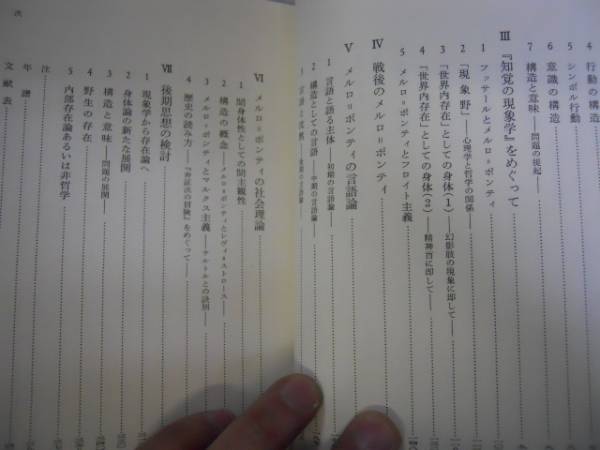 4 行動の構造
5 シンボル行動
6 意識の構造
7 構造と意味――問題の提起――
Ⅲ 『知覚の現象学』をめぐって
1 フッサールとメルロ=ポンティ
2 「現象野」――心理学と哲学の関係――
3 「世界内存在」としての身体(1)――幻影肢の現象に即して――
4 「世界内存在」としての身体(2)――精神盲に即して――
5 メルロ=ポンティとフロイト主義
Ⅳ 戦後のメルロ=ポンティ
Ⅴ メルロ=ポンティの言語論
1 言語と語る主体――初期の言語論――
2 構造としての言語――中期の言語論――
Ⅵ メルロ=ポンティの社会理論
1 間身体性としての間主観性
2 構造の概念――メルロ=ポンティとレヴィ=ストロース――
3 メルロ=ポンティとマルクス主義――サルトルとの訣別――
4 歴史の読み方――『弁証法の冒険』をめぐって――
Ⅶ 後期思想の検討
1 現象学から存在論へ
2 身体論の新たな展開
3 構造と意味――問題の展開――
4 野生の存在
5 内部存在論あるいは非哲学
注
年譜
文献表
次